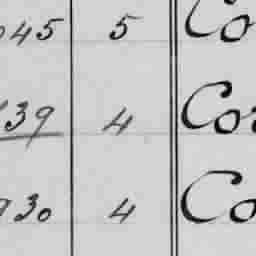 045 5 Co
139 4 Cor
930 4 Co